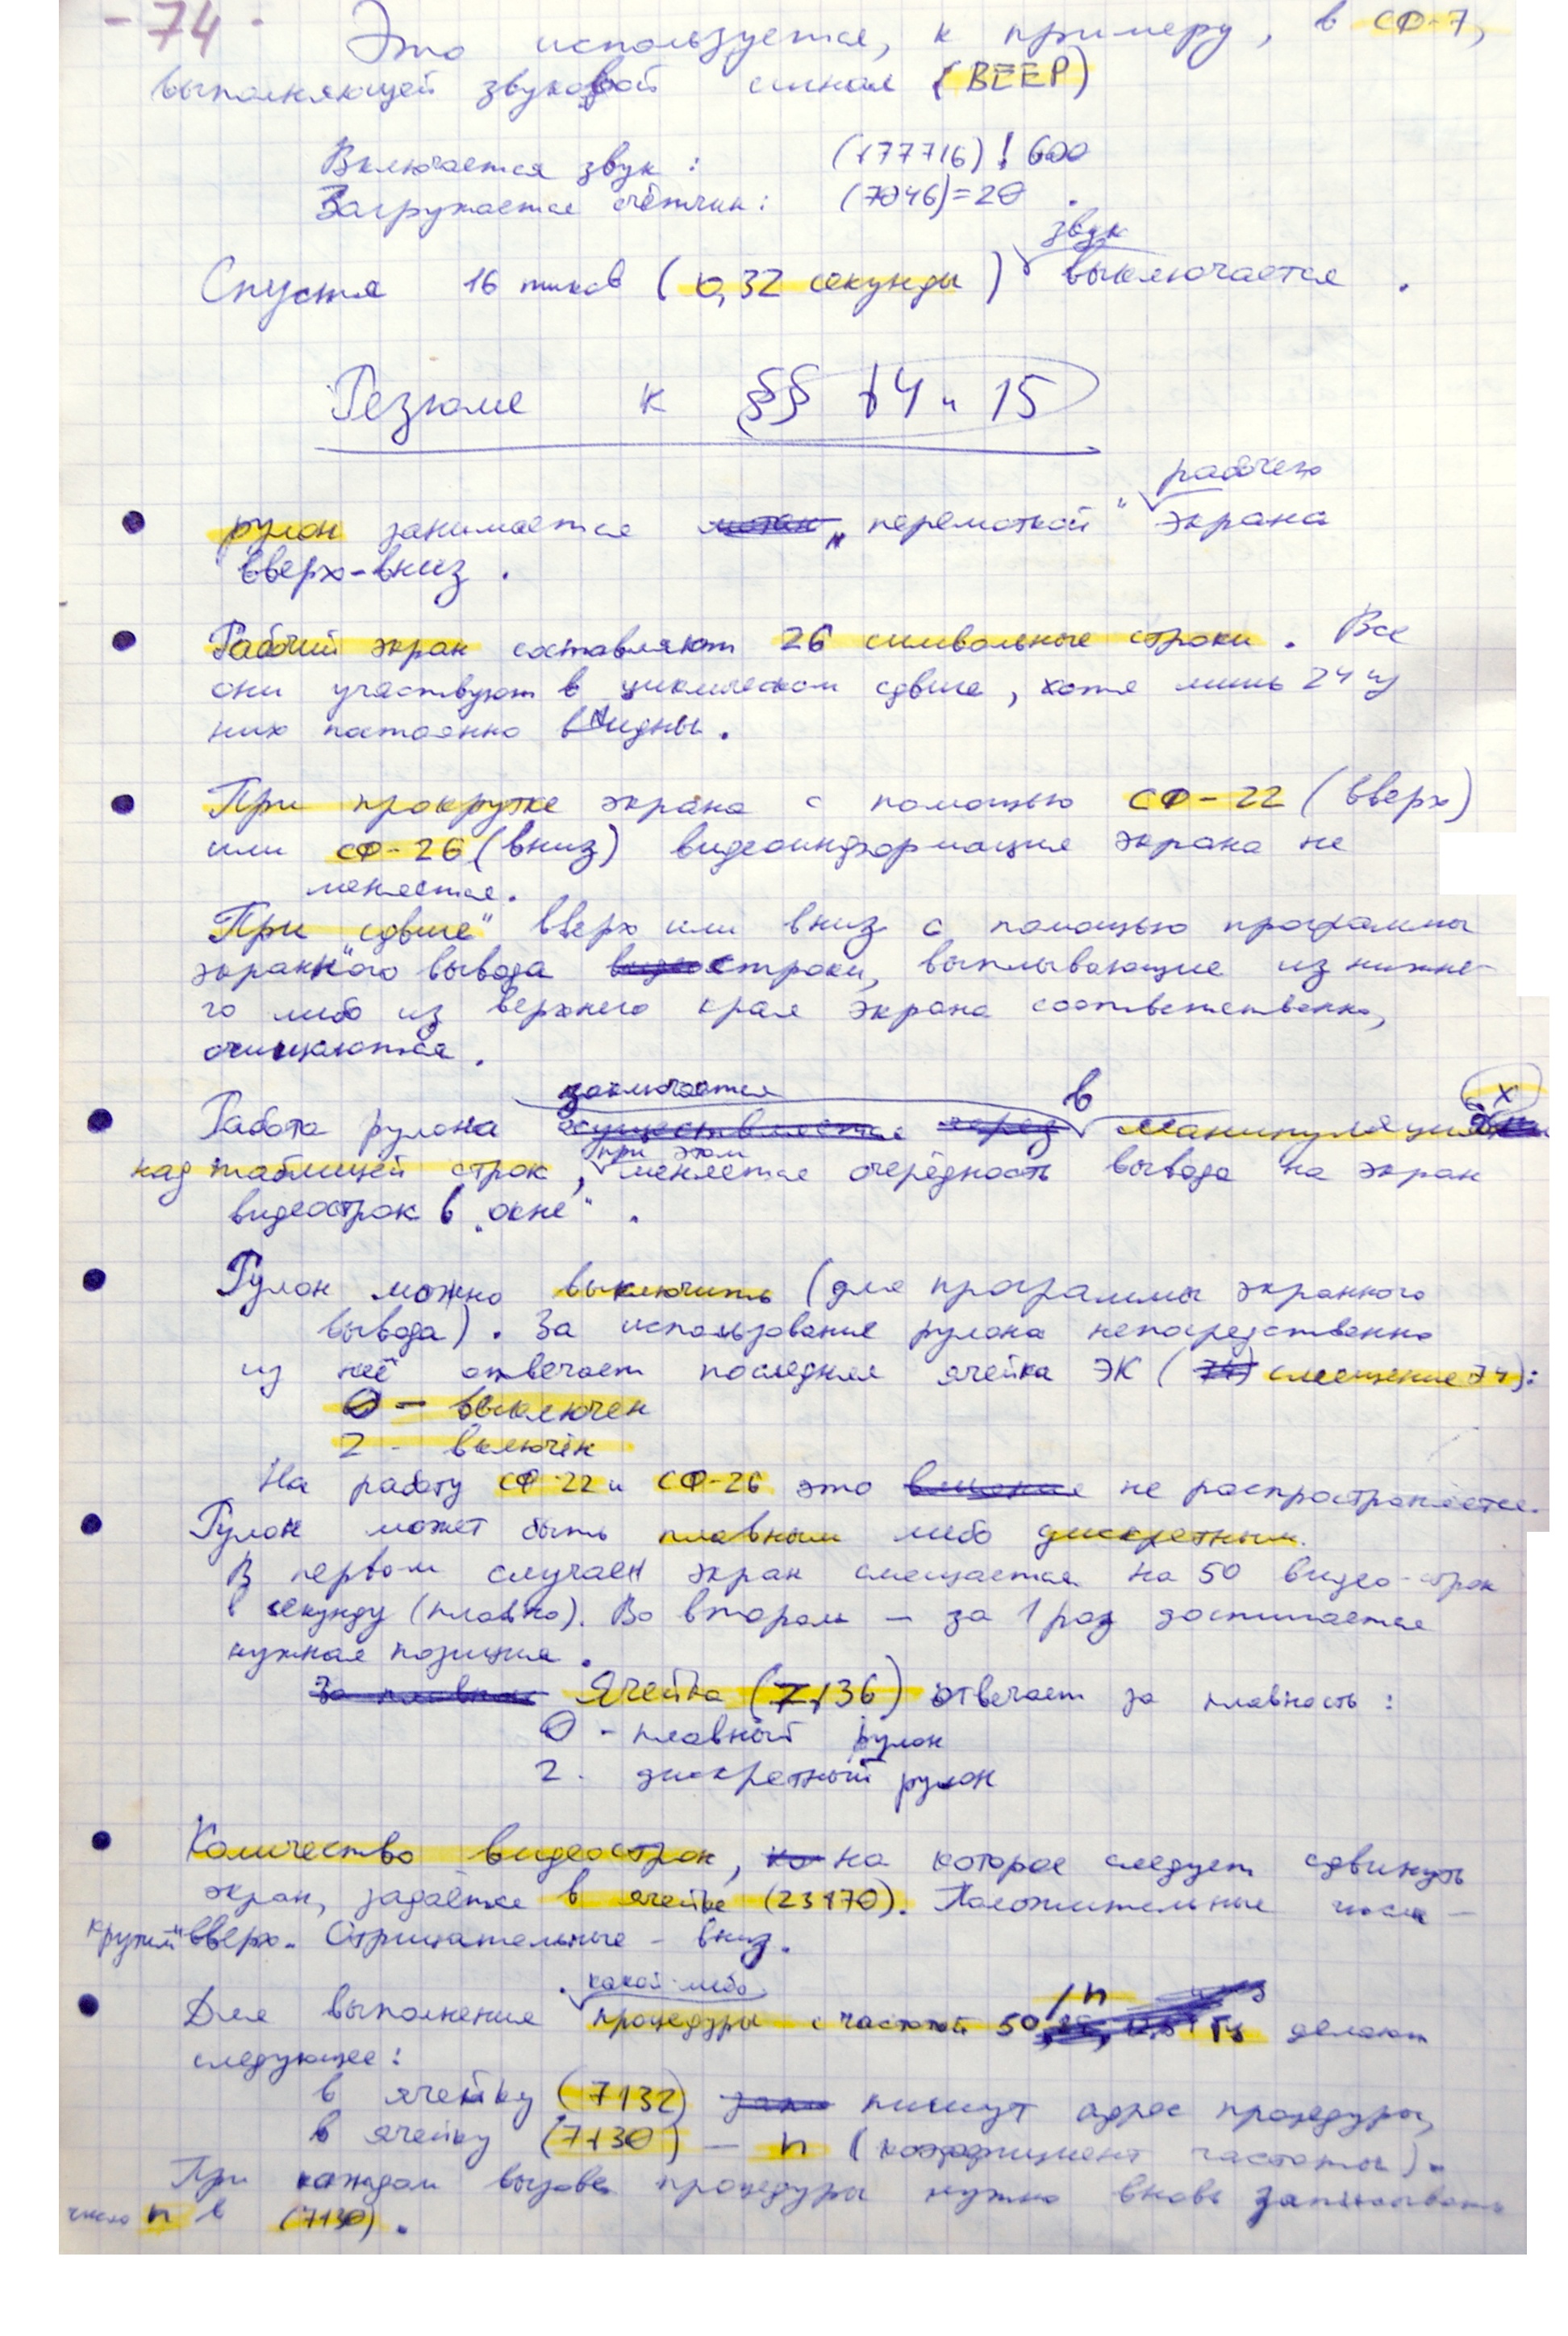 - 74 -
Это используется, к примеру, в СФ-7,
выполняющей звуковой сигнал (BEEP)
Включается звук: (177716) ! 600
Загружается счётчик: (7046)=20.
звук
Спустя 16 тиков (0,32 секунды) выключается.
Резюме к §§ 14 и 15
рабочего
рулон занимается „перемоткой" экрана
вверх-вниз.
Рабочий экран составляют 26 символьные строки. Все
они участвуют в циклическом сдвиге, хотя лишь 24 из
них постоянно видны.
При прокрутке экрана с помощью СФ-22 (вверх)
или СФ-26 (вниз) видеоинформация экрана не
меняется.
При "сдвиге" вверх или вниз с помощью программы
экранного вывода строки, выплывающие из нижне-
го либо из верхнего края экрана соответственно,
очищаются.
заключается в х
Работа рулона манипуляция
при этом
над таблицей строк, меняется очерёдность вывода на экран
видеострок в „окне".
Рулон можно выключить (для программы экранного
вывода). За использование рулона непосредственно
из неё отвечает последняя ячейка ЭК (смещение 74):
0 - выключен
2 - включён
На работу СФ-22 и СФ-26 это не распространяется.
Рулон может быть плавным либо дискретным.
В первом случае экран смещается на 50 видео-строк
в секунду (плавно). Во втором — за 1 раз достигается
нужная позиция.
Ячейка (7136) отвечает за плавность:
0 - плавный рулон
2 - дискретный рулон
Количество видеострок, на которое следует сдвинуть
экран, задаётся в ячейке (23170). Положительные числа -
"крутим" вверх. Отрицательные - вниз.
какой-либо
Для выполнения процедуры с частотой 50/n Гц делают
следующее:
в ячейку (7132) пишут адрес процедуры,
в ячейку (7130) — n (коэффициент частоты).
При каждом вызове процедуры нужно вновь записывать
число n в (7130).